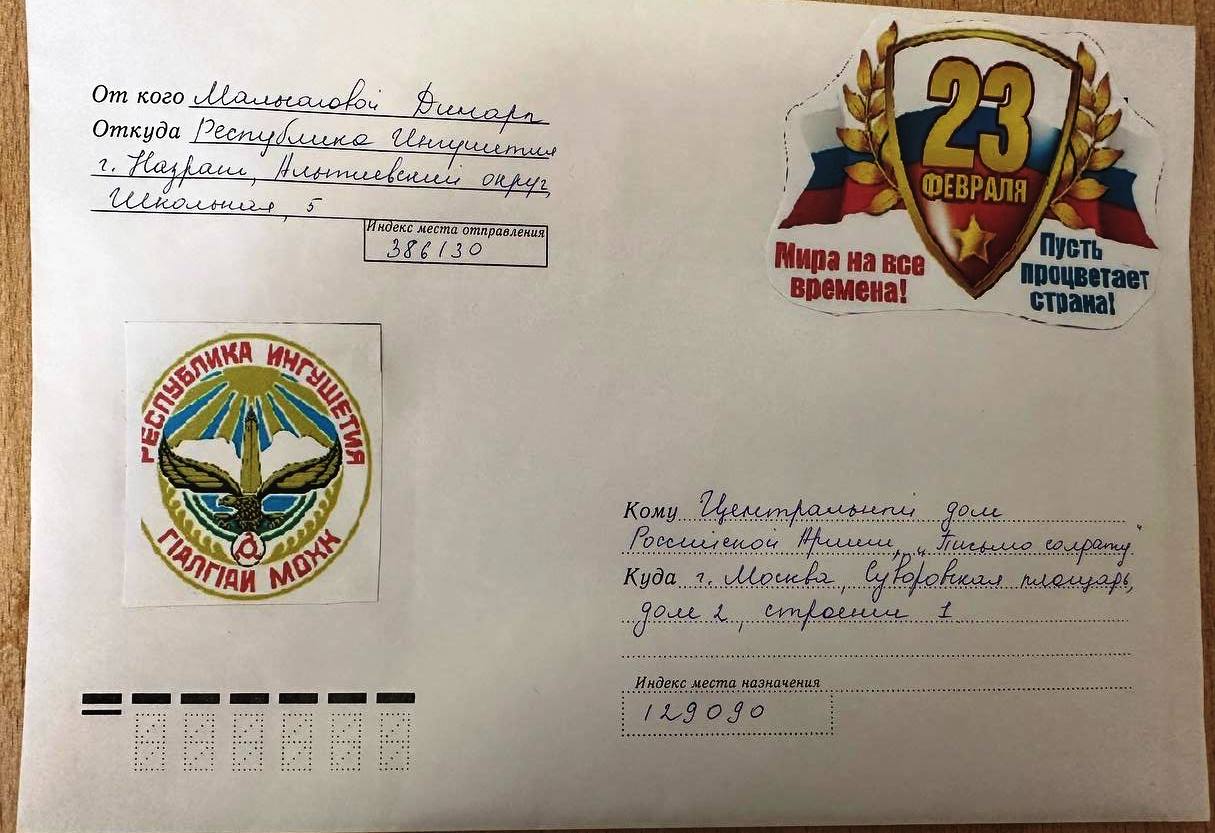 От кого Мальсаговой Динары
Откуда Республика Ингушетия
г. Назрань, Альтиевский округ,
Школьная, 5
Индекс места отправления
386130
23
ФЕВРАЛЯ
Мира на все
времена!
Пусть
процветает
страна!
РЕСПУБЛИКА ИНГУШЕТИЯ
ГIАЛГIАЙ МОХК
Кому Центральный дом
Российской Армии, „Письмо солдату"
Куда г. Москва, Суворовская площадь,
дом 2, строение 1
Индекс места назначения
129090